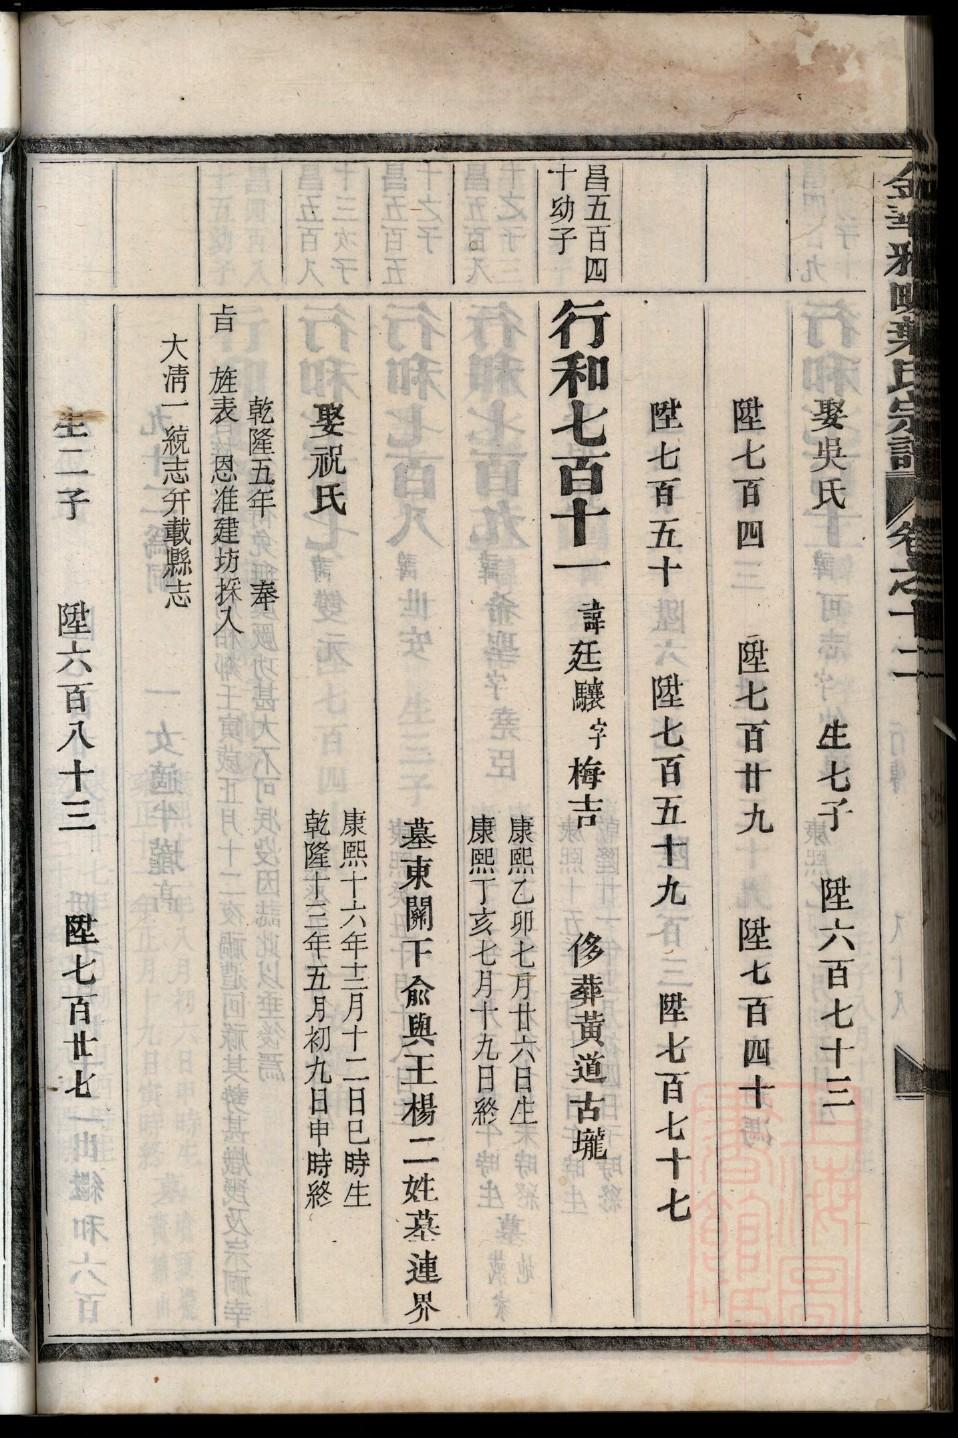 金華雅畈葉氏宗譜 卷之十二
娶吳氏 生七子 陞六百七十三
陞七百四三 陞七百廿九 陞七百四十
陞七百五十 陞七百五十九 陞七百七十七
昌五百四
十幼子
行和七百十一 諱廷驤字梅吉 侈葬黃道古壠
康熙乙卯七月廿六日生
康熙丁亥七月十九日終
墓東關下俞與王楊二姓墓連界
娶祝氏
康熙十六年十二月十二日巳時生
乾隆十三年五月初九日申時終
乾隆五年 奉
旨 旌表 恩准建坊採入
大凊一統志并載縣志
生二子 陞六百八十三 陞七百廿七